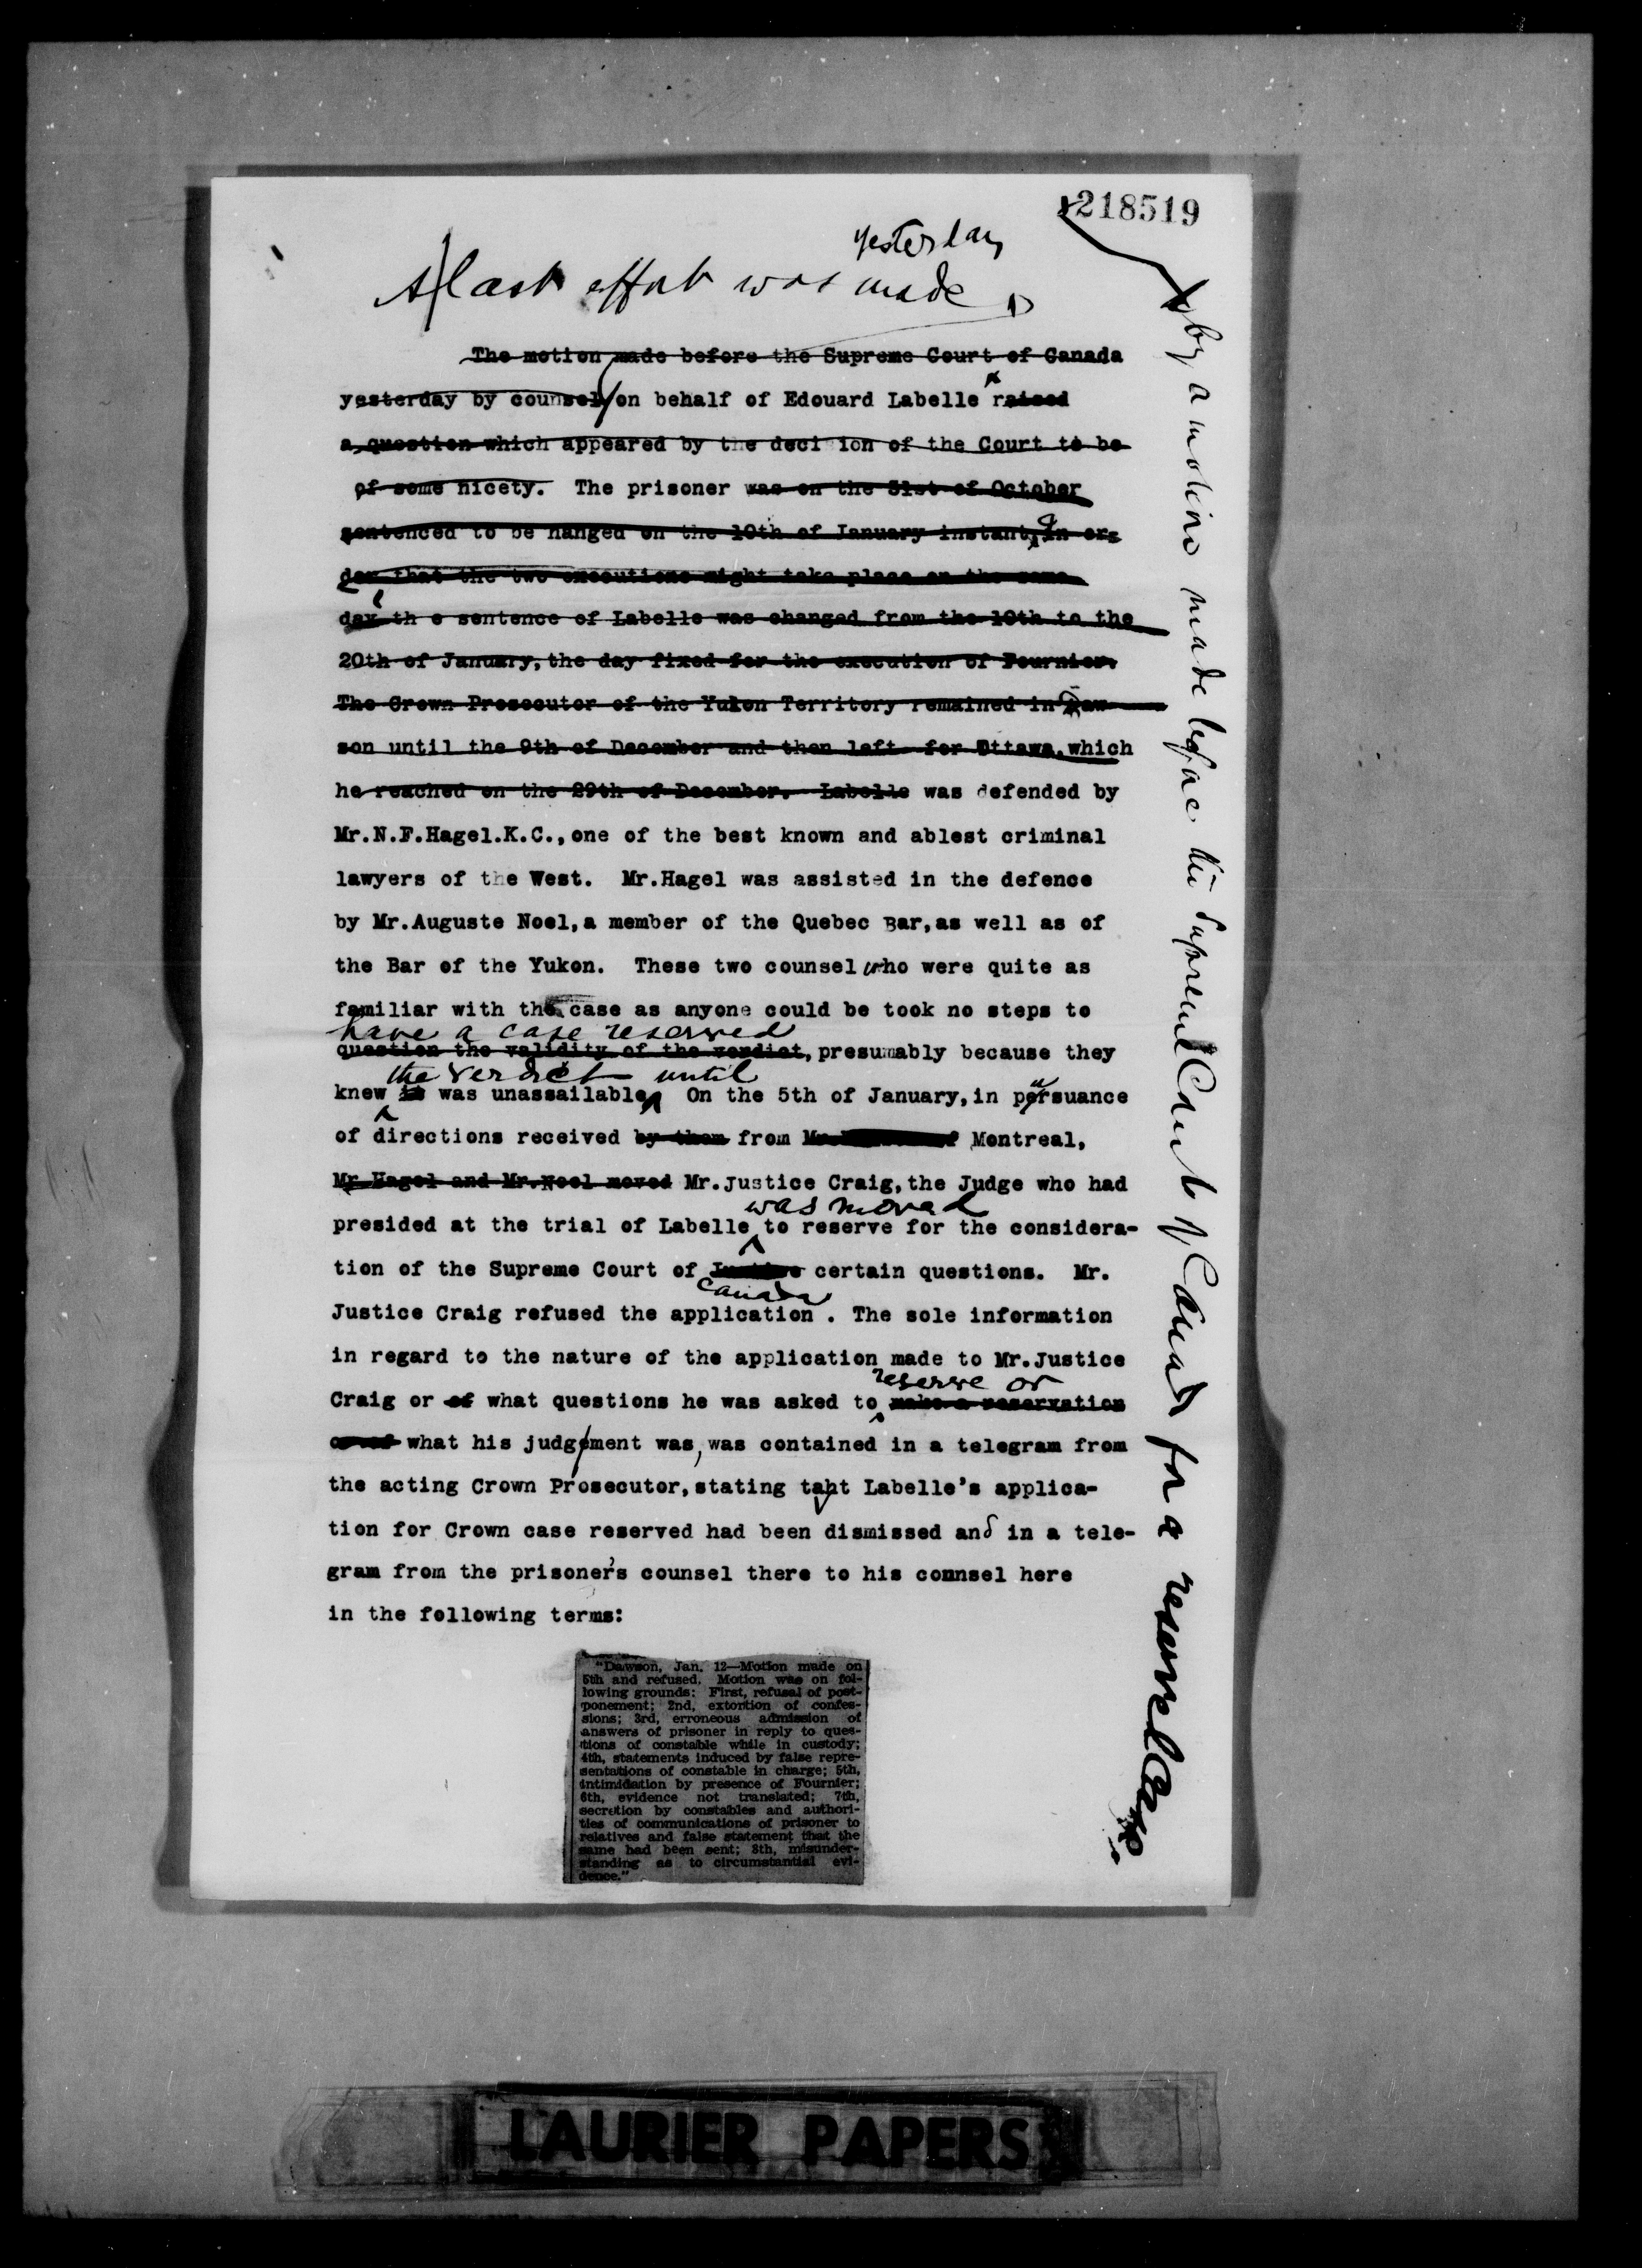 218519
yesterday
A last effort was made
The motion made before the Supreme Court of Canada
yesterday by counsel on behalf of Edouard Labelle x raised
a question which appeared by the decision of the Court to be
of some nicety. The prisoner was on the 31st of October
sentenced to be hanged on the 10th of January instant, In or-
der that the two executions might take place on the same
day th e sentence of Labelle was changed from the 10th to the
20th of January, the day fixed for the execution of Fournier.
The Crown Prosecutor of the Yukon Territory remained in Daw-
son until the 9th of December and then left for Ottawa, which
he reached on the 29th of December. Labelle was defended by
Mr.N.F.Hagel.K.C., one of the best known and ablest criminal
lawyers of the West. Mr.Hagel was assisted in the defence
by Mr.Auguste Noel, a member of the Quebec Bar, as well as of
the Bar of the Yukon. These two counsel who were quite as
familiar with the case as anyone could be took no steps to
have a case reserved
question the validity of the verdict, presumably because they
the verdict until
knew it was unassailable. On the 5th of January, in pursuance
of directions received by them from Mr. of Montreal,
Mr Hagel and Mr.Noel moved Mr.Justice Craig, the Judge who had
was moved
presided at the trial of Labelle to reserve for the considera-
tion of the Supreme Court of certain questions. Mr.
Canada
Justice Craig refused the application . The sole information
in regard to the nature of the application made to Mr.Justice
reserve or
Craig or of what questions he was asked to make a reservation
or of what his judgement was, was contained in a telegram from
the acting Crown Prosecutor, stating taht Labelle's applica-
tion for Crown case reserved had been dismissed and in a tele-
gram from the prisoner's counsel there to his connsel here
in the following terms:
"Dawson, Jan. 12—Motion made on
5th and refused. Motion was on fol-
lowing grounds: First, refusal of post-
ponement; 2nd, extortion of confes-
sions; 3rd, erroneous admission of
answers of prisoner in reply to ques-
tions of constable while in custody;
4th, statements induced by false repre-
sentations of constable in charge; 5th,
intimidation by presence of Fournier;
6th, evidence not translated; 7th,
secretion by constables and authori-
ties of communications of prisoner to
relatives and false statement that the
same had been sent; 8th, misunder-
standing as to circumstantial evi-
dence."
x by a motion made before the Supreme Court of Canada for a reserved case.
LAURIER PAPERS